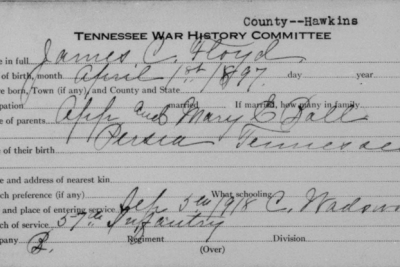 County--Hawkins
TENNESSEE WAR HISTORY COMMITTEE
e in full James C. Floyd
of birth, month April 1st 1897. day year.
re born, Town (if any) and County and State
pation married If married, how many in family.
e of parents App and Mary E Ball
e of their birth Persia Tennessee
e and address of nearest kin
ch preference (if any) What schooling
and place of entering service Sep 5th 1918 C. Wadsw
ch of service 57th Infantry
pany B. Regiment Division
(Over)